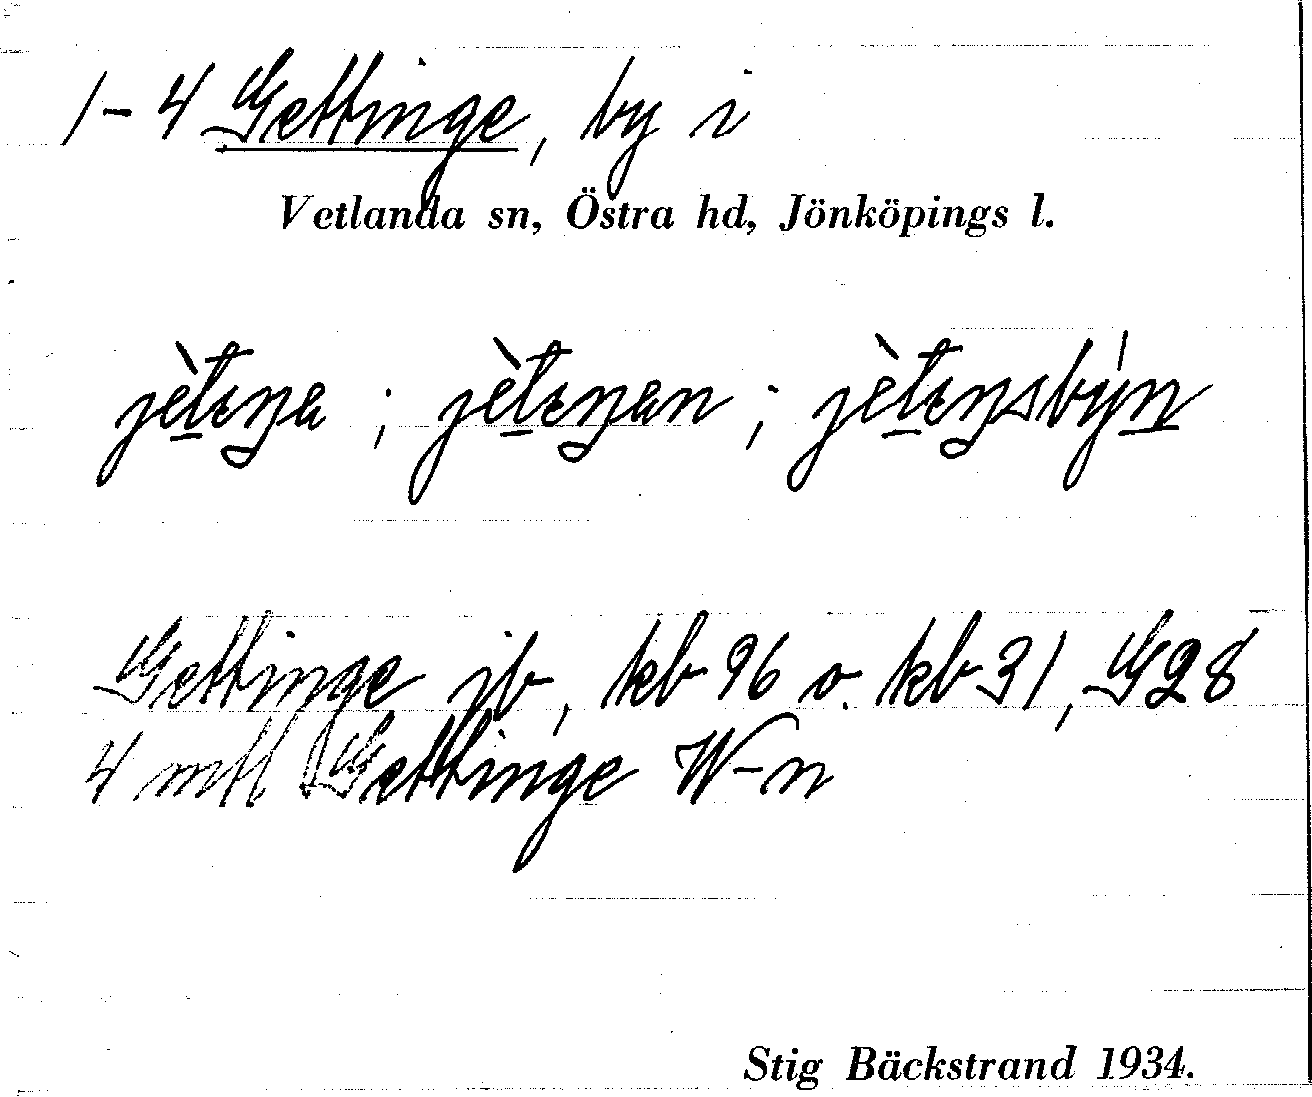 1-4 Gettinge, by i
Vetlanda sn, Östra hd, Jönköpings l.
jètɛŋa ; jètɛŋan ; jètɛŋsbýn
Gettinge jb, kb 96 o. kb 31, G28
4 mtl Gettinge W-n
Stig Bäckstrand 1934.